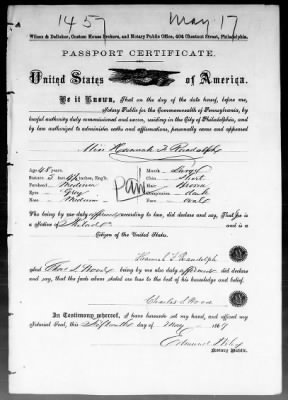 1457 May 17
Wilson & Dallabar, Custom House Brokers, and Notary Public Office, 404 Chestnut Street, Philadelphia.
PASSPORT CERTIFICATE.
United States of America.
Be it Known, That on the day of the date hereof, before me,
Notary Public for the Commonwealth of Pennsylvania, by
lawful authority duly commissioned and sworn, residing in the City of Philadelphia, and
by law authorized to administer oaths and affirmations, personally came and appeared
Miss Hannah F. Randolph
Age, 48 years. Mouth Large
Stature, 5 feet inches, Eng'h. Chin Short
Forehead Medium Hair Brown
Eyes Gray dark
Nose Medium Face Oval
Paid
who being by me duly affirmed according to law, did declare and say, That she is
a Native of and is a
Citizen of the United States.
Hannah F Randolph
And Chas S. Wood being by me also duly affirmed did declare
and say, that the facts above stated are true to the best of his knowledge and belief.
Charles S. Wood
In Testimony whereof, I have hereunto set my hand, and affixed my
Notarial Seal, this fifteenth day of May 1869
Edmund
Notary Public.